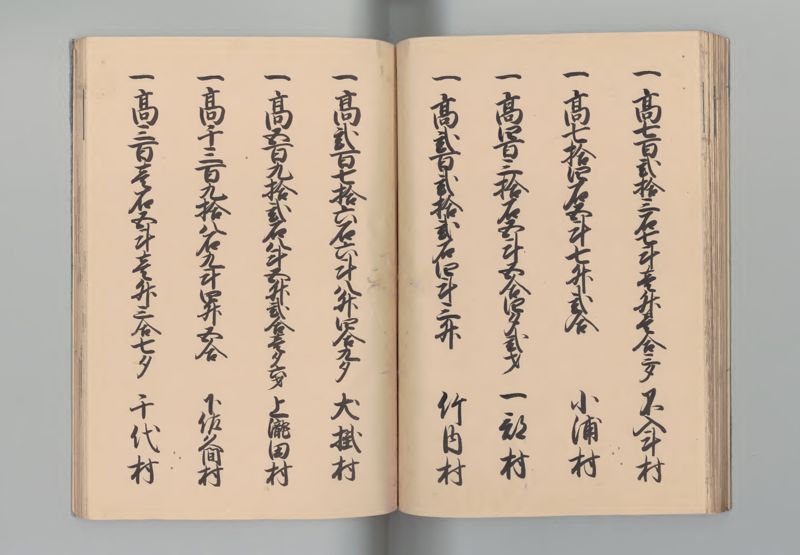 一高七百弐拾三石七斗壱升壱合三夕 不入斗村
一高七拾四石五斗七升弐合 小浦村
一高四百三拾石五斗五合四夕弐才 一部村
一高弐百弐拾弐石四斗三升 竹内村
一高弐百七拾六石六斗八升四合九夕 犬掛村
一高五百九拾弐石八斗五升弐合壱夕六才 上瀧田村
一高千三百九拾八石九斗四升五合 下佐久間村
一高三百壱石五斗壱升三合七夕 千代村